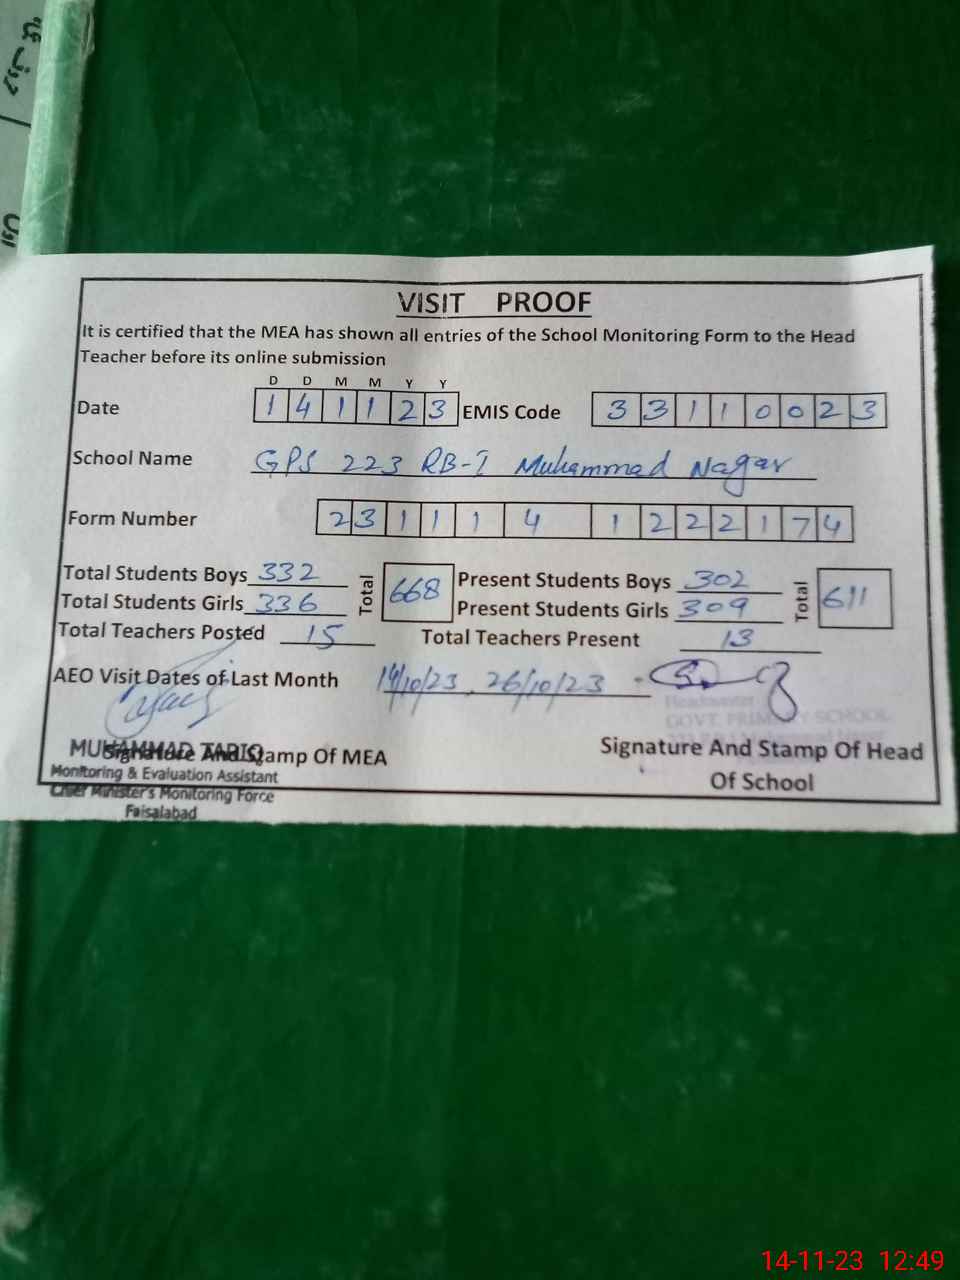 VISIT PROOF
It is certified that the MEA has shown all entries of the School Monitoring Form to the Head
Teacher before its online submission
D D M M Y Y
Date 1 4 1 1 2 3 EMIS Code 3 3 1 1 0 0 2 3
School Name GPS 223 RB-I Muhammad Nagar
Form Number 2 3 1 1 1 4 1 2 2 2 1 7 4
Total Students Boys 332 Total 668 Present Students Boys 302 Total 611
Total Students Girls 336 Present Students Girls 309
Total Teachers Posted 15 Total Teachers Present 13
AEO Visit Dates of Last Month 14/10/23, 26/10/23
Headmaster
GOVT. PRIMARY SCHOOL
MUHAMMAD TARIQ
Signature And Stamp Of MEA
Signature And Stamp Of Head
Of School
Monitoring & Evaluation Assistant
Chief Minister's Monitoring Force
Faisalabad
14-11-23 12:49